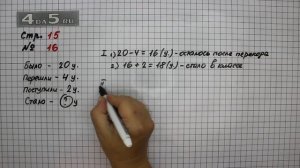 4DA5.RU
Стр. 15
№ 16
Было - 20 у.
Перешли - 4 у.
Поступили - 2 у.
Стало - ? у
I 1) 20-4=16 (у.) - осталось после перехода
2) 16+2=18 (у.) - стало в классе
II